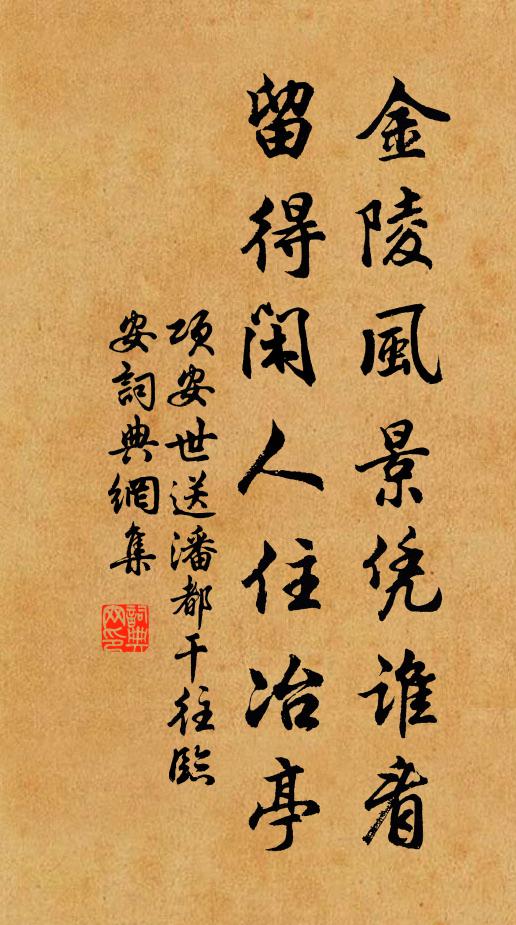 金陵風景凭誰看
留得閑人住冶亭
項安世送潘都干往臨
安詞典網集
詞典网印